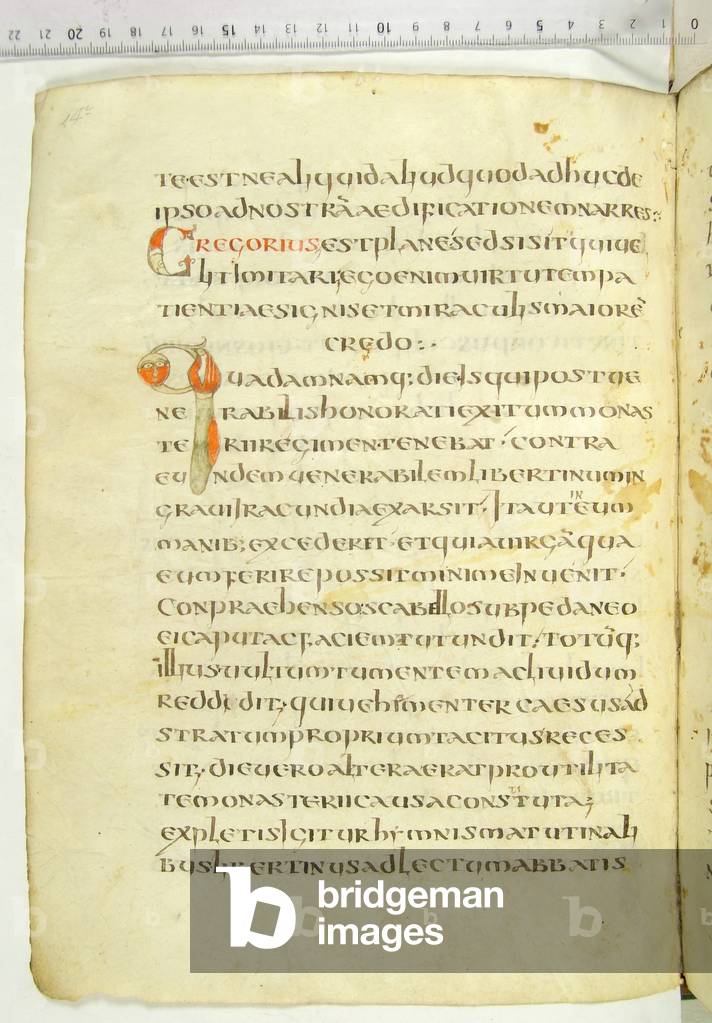 0 1 2 3 4 5 6 7 8 9 10 11 12 13 14 15 16 17 18 19 20 21 22
TEESTNEALIQUIDALIUDQUODADHUCDE
IPSOADNOSTRĀAEDIFICATIONEMNARRES:
GREGORIUS;ESTPLANE;SEDSISITQUIUE
LITIMITARI;EGOENIMUIRTUTEMPA
TIENTIAESIGNISETMIRACULISMAIORĒ
CREDO:.
QUADAMNAMQ;DIE·ISQUIPOSTUE
NERABILISHONORATIEXITUMMONAS
TERIIREGIMENTENEBAT·CONTRA
EUNDEMUENERABILEMLIBERTINUMIN
GRAUIIRACUNDIAEXARSIT·ITAUTEUM
IN
MANIB;EXCEDERET·ETQUIAUIRGĀQUA
EUMFERIREPOSSITMINIMEINUENIT·
CONPRAEHENSOSCABELLOSUBPEDANEO
EICAPUTACFACIEMTUTUNDIT;TOTŪQ;
ILLIUSUULTUMTUMENTEMACLIUIDUM
REDDIDIT;QUIUEHEMENTERCAESUSAD
STRATUMPROPRIUMTACITUSRECES
SIT;DIEUEROALTERAERATPROUTILITA
TEMONASTERIICAUSACONSTUTA;
TI
EXPLETISIGITURHYMNISMATUTINALI
BUSLIBERTINUSADLECTUMABBATIS
bridgeman
images